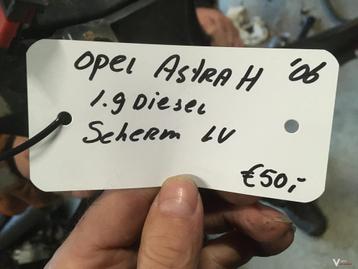 Opel Astra H '06
1.9 Diesel
Scherm LV
€50,-